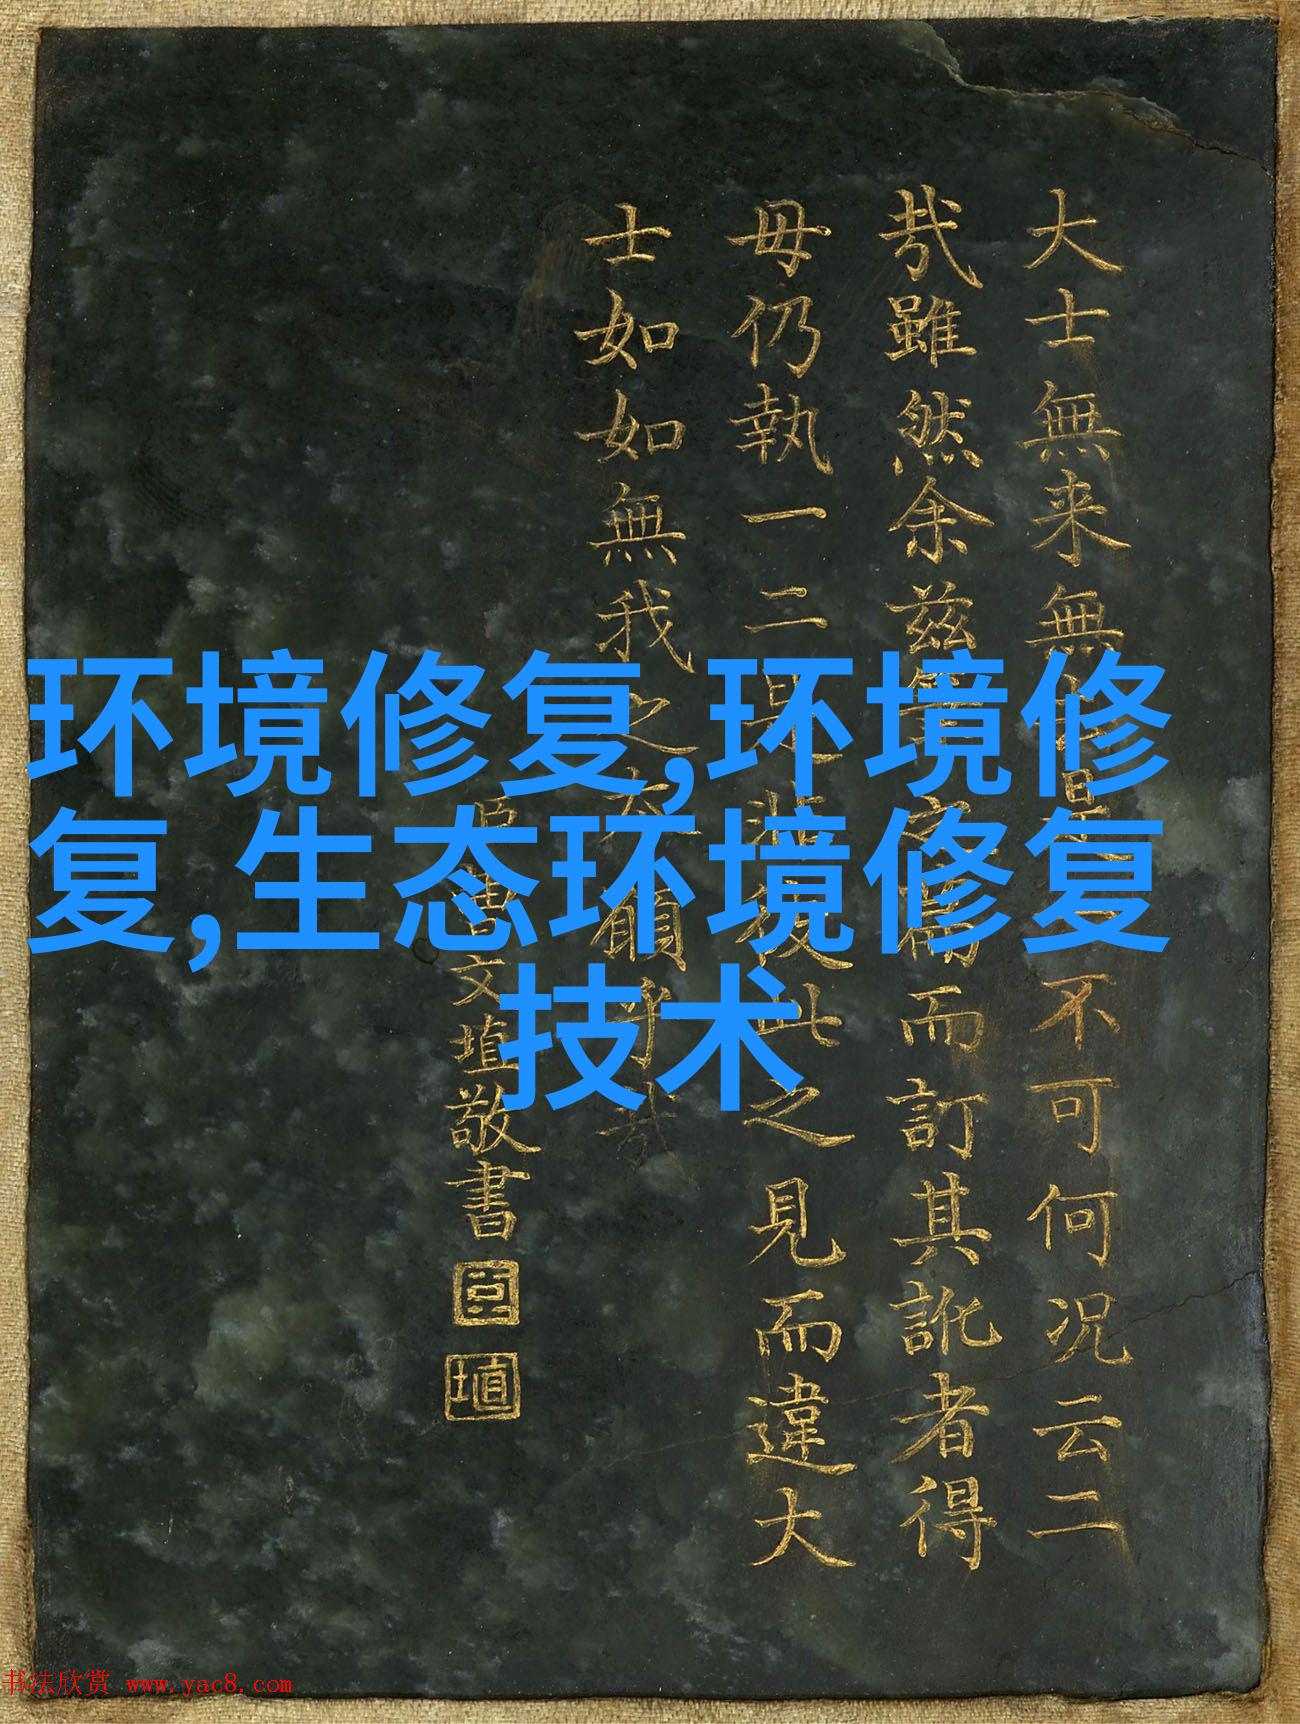 环境修复,环境修
复,生态环境修复
技术
大士無来無不可何况云二
哉雖然余兹而訂其訛者得
毋仍執一二彼此之見而違大
士如如無我之願哉
文埴敬書
臣
埴
书法欣赏 www.yac8.com